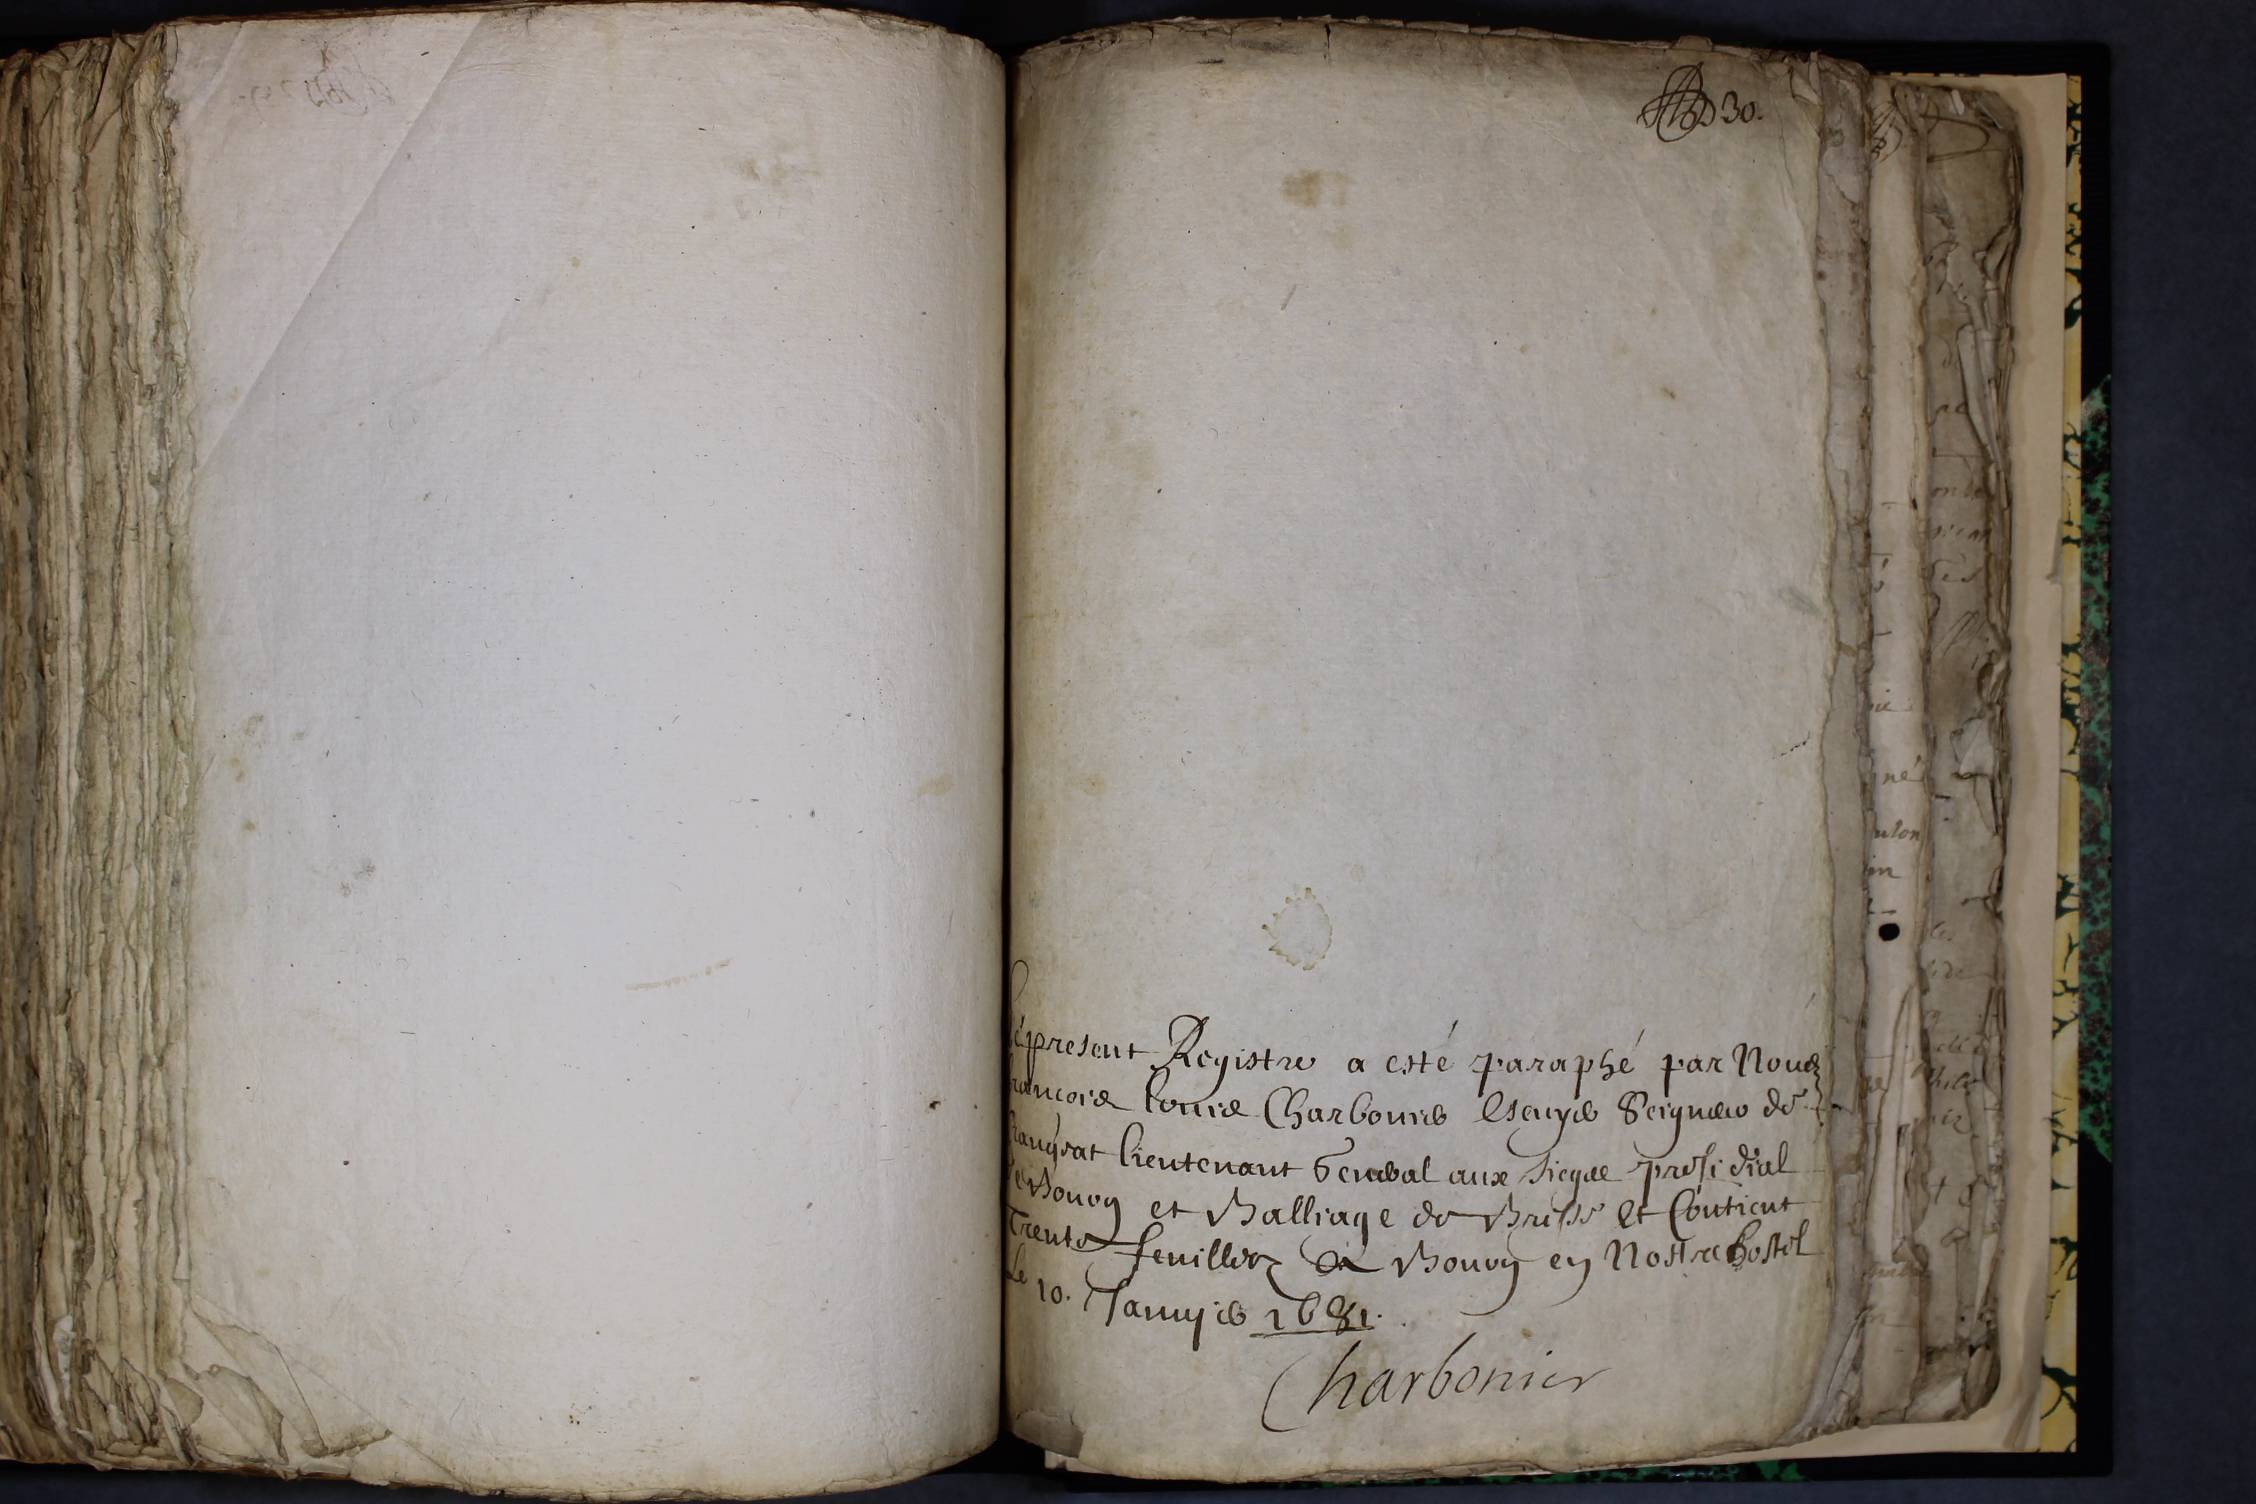 30.
Le present Registre a esté paraphé par Nous
francois Louis Charbonier Escuyer Seigneur de
Crangeat Lieutenant General aux sieges presidial
de Bourg et Balliage de Bresse Et Contient
Trente feuilles A Bourg en Nostre hostel
Le 10. Januyer 1681.
Charbonier